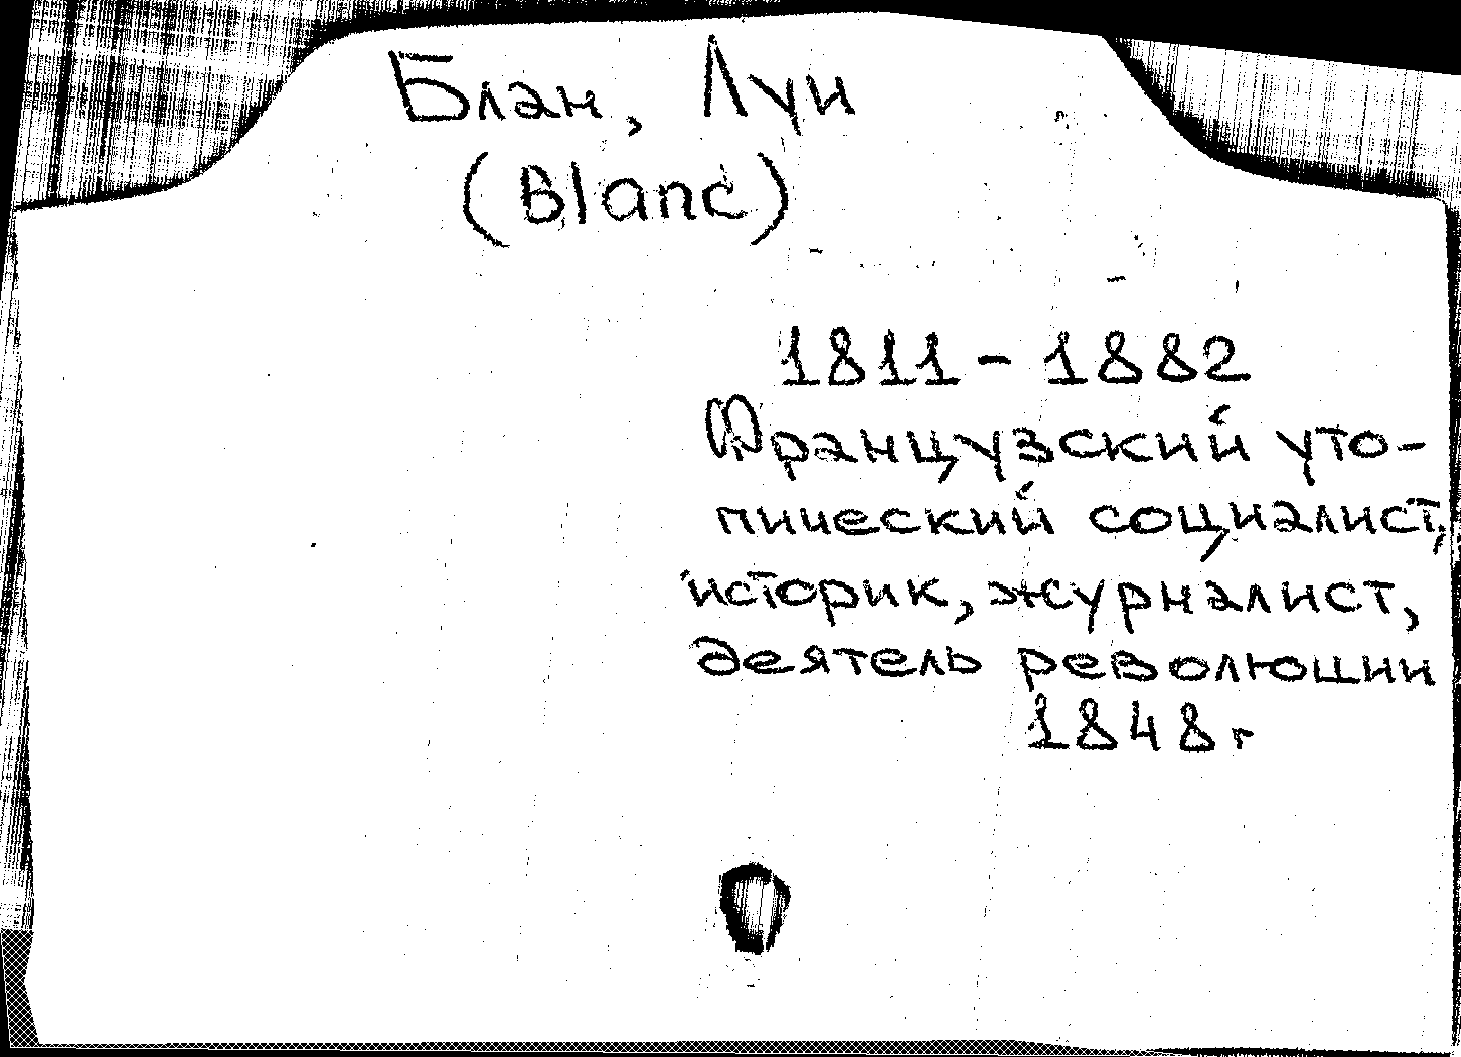 Блан, Луи
(Blanc)
1811 - 1882
Французский уто-
пический социалист,
историк, журналист,
деятель революции
1848 г